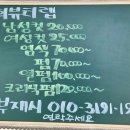 헤뷰티랩
남성컷 20,000
여성컷 25,000
염색 70,000~
펌 70,000~
열펌 100,000~
크리닉펌 120,000~
부재시 010-3191-15
연락주세요